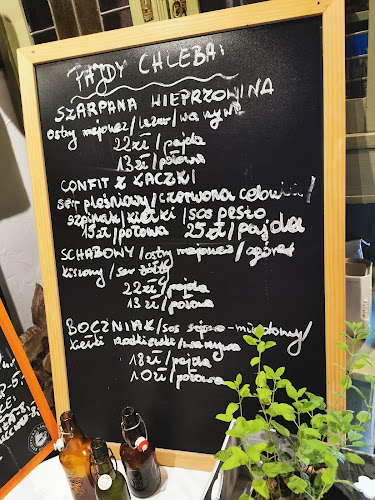 PAJDY CHLEBA:
SZARPANA WIEPRZOWINA
ostry majonez/
22zł/pajda
13zł/połowa
CONFIT Z KACZKI
ser pleśniowy/czerwona cebula/
szpinak/kiełki/sos pesto
15zł/połowa 25zł/pajda
SCHABOWY/ostry majonez/ogórek
kiszony/ser żółty
22zł/pajda
13zł/połowa
BOCZNIAK/sos sojowo-miodowy/
kiełki rzodkiewki/warzywa
18zł/pajda
10zł/połowa